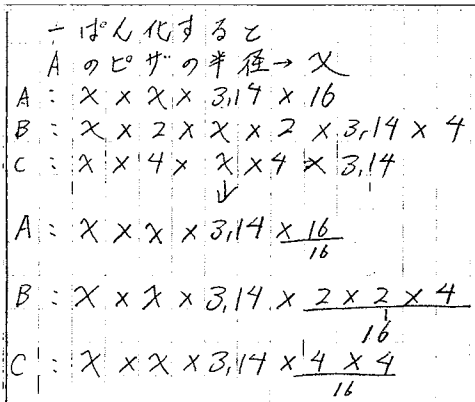 一ぱん化すると
Aのピザの半径→x
A : x × x × 3,14 × 16
B : x × 2 × x × 2 × 3,14 × 4
C : x × 4 × x × 4 × 3,14
↓
A : x × x × 3,14 × 16
16
B : x × x × 3,14 × 2 × 2 × 4
16
C : x × x × 3,14 × 4 × 4
16